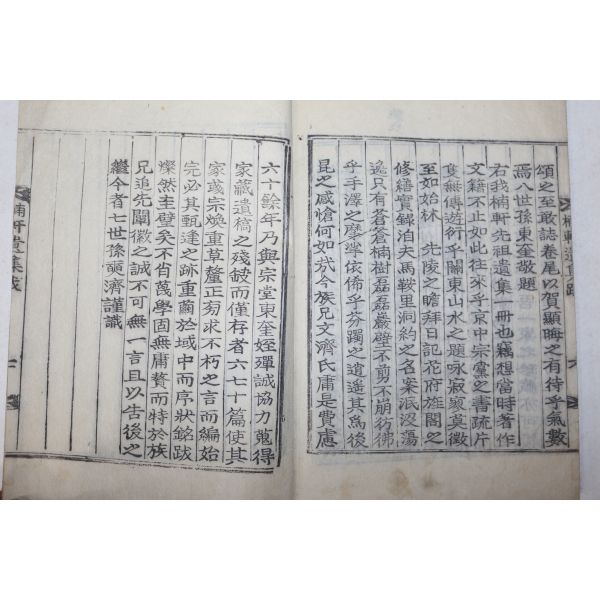 頌之至敢誌卷尾以賀顯晦之有待乎氣數
焉八世孫東奎敬題
右我楠軒先祖遺集一冊也竊想當時著作
文籍不止如此往來乎京中宗黨之書疏片
隻無傳遊衍乎關東山水之題咏寂寥莫徵
至如始林 先陵之瞻拜日記花府旌閣之
修繕實錄洎夫馬鞍里洞約之名案泯沒蕩
逸只有蒼蒼楠樹磊磊巖壁不剪不崩彷彿
乎手澤之摩挲依俙乎芬躅之逍遙其爲後
昆之感愴何如哉今族兄文濟氏庸是費慮
六十餘年乃與宗堂東奎姪殫誠協力蒐得
家藏遺稿之殘皴而僅存者六七十篇使其
家歲宗煥重草釐正旁求不朽之言而編始
完必其甄逹之跡重蔔於域中而序狀銘跋
燦然圭璧矣不肖蔑學固無庸贅而特於族
兄追先闡徽之誠不可無一言且以告後之
繼今者七世孫奭濟謹識
楠軒遺集跋